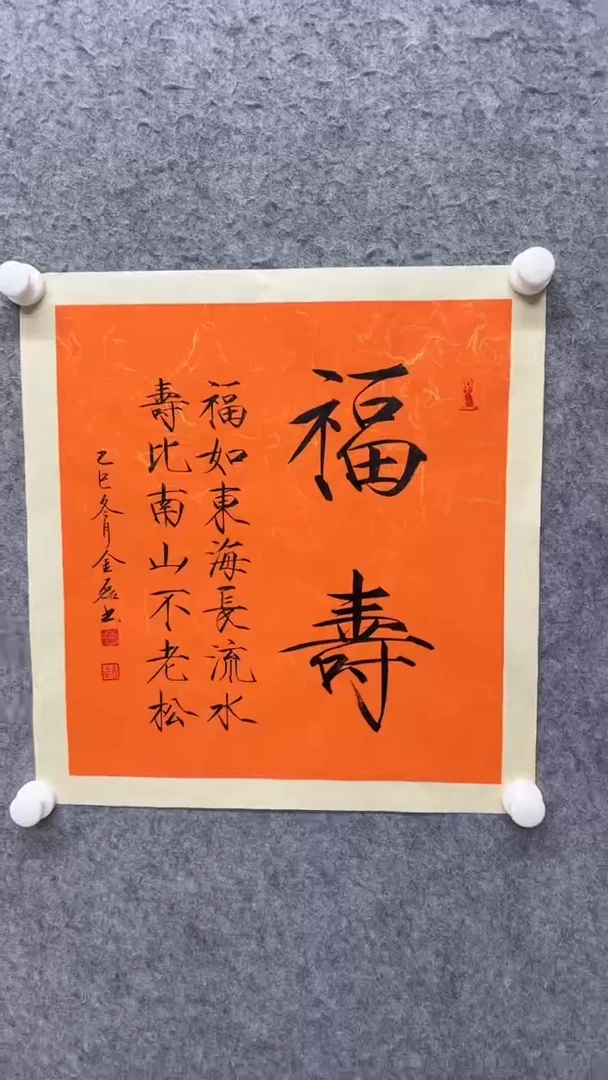 福寿
福如東海長流水
壽比南山不老松
乙巳冬月金磊书